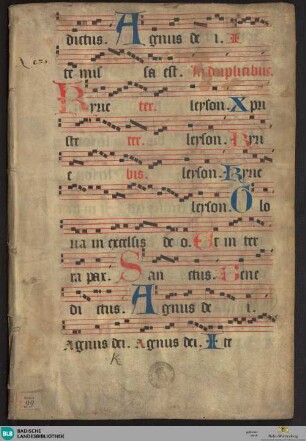 dictus. Agnus de i. I
te mis sa est. In duplicibus
Kyrie ter. leyson. Xpri
ste ter. leyson. Kyri
e bis. leyson. Kyrie
leyson. Glo
ria in excelsis de o. Et in ter
ra pax. San ctus. Bene
di ctus. Agnus de i.
Agnus dei. Agnus dei. Ite
K
99
BLB BADISCHE LANDESBIBLIOTHEK